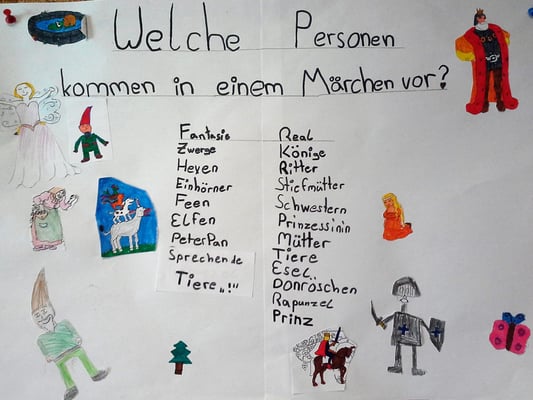 Welche Personen
kommen in einem Märchen vor?
Fantasie
Zwerge
Hexen
Einhörner
Feen
Elfen
Peter Pan
Sprechende
Tiere „!"
Real
Könige
Ritter
Stiefmütter
Schwestern
Prinzessinin
Mütter
Tiere
Esel
Donröschen
Rapunzel
Prinz